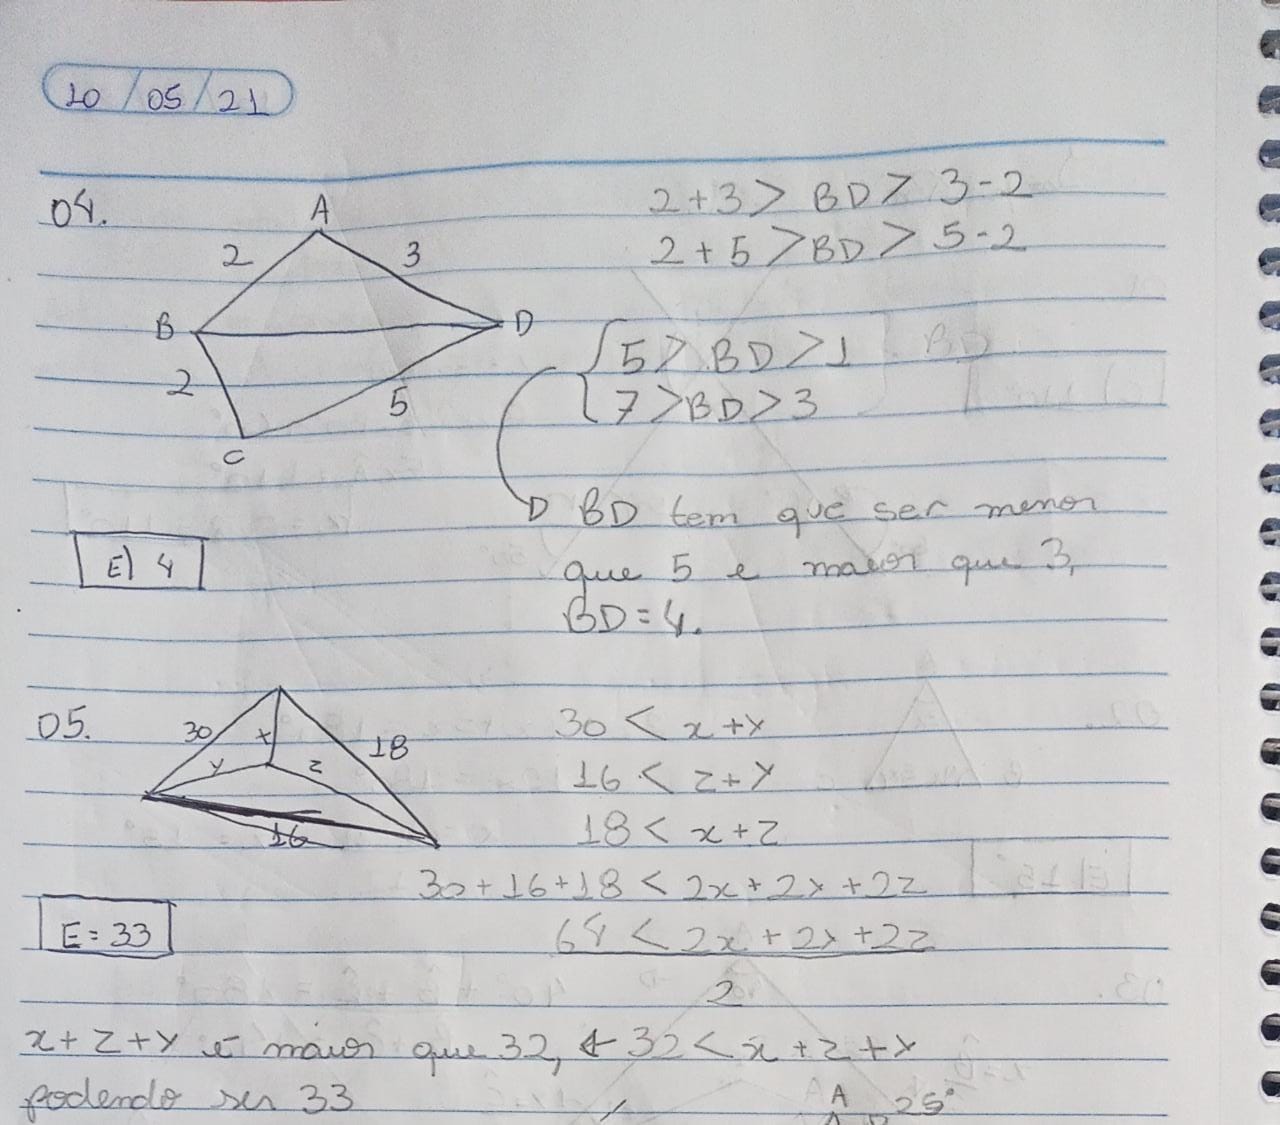 10/05/21
04.
A
2
3
B
D
2
5
C
2+3 > BD > 3-2
2+5 > BD > 5-2
5 > BD > 1
7 > BD > 3
BD tem que ser menor
que 5 e maior que 3,
BD = 4.
E) 4
05.
30
x
18
y
z
16
30 < x + y
16 < z + y
18 < x + z
30 + 16 + 18 < 2x + 2y + 2z
64 < 2x + 2y + 2z
2
E = 33
x + z + y é maior que 32, ← 32 < x + z + y
podendo ser 33
A
25°